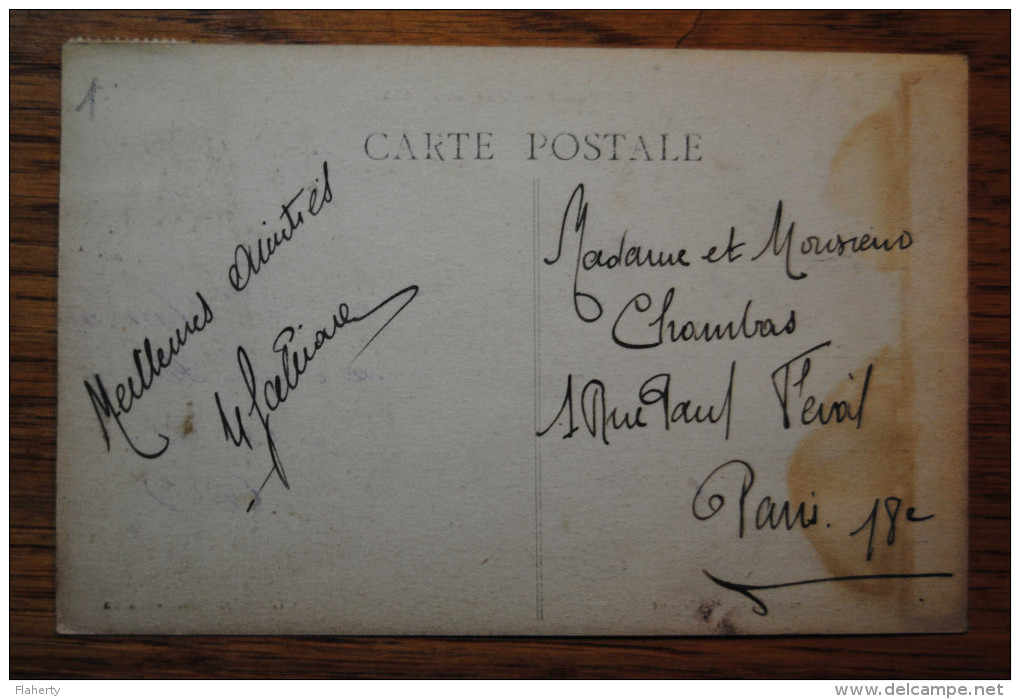 1
CARTE POSTALE
Meilleures Amitiés
Madame et Monsieur
Chambas
1 Rue Paul Féval
Paris. 18e
Flaherty
www.delcampe.net